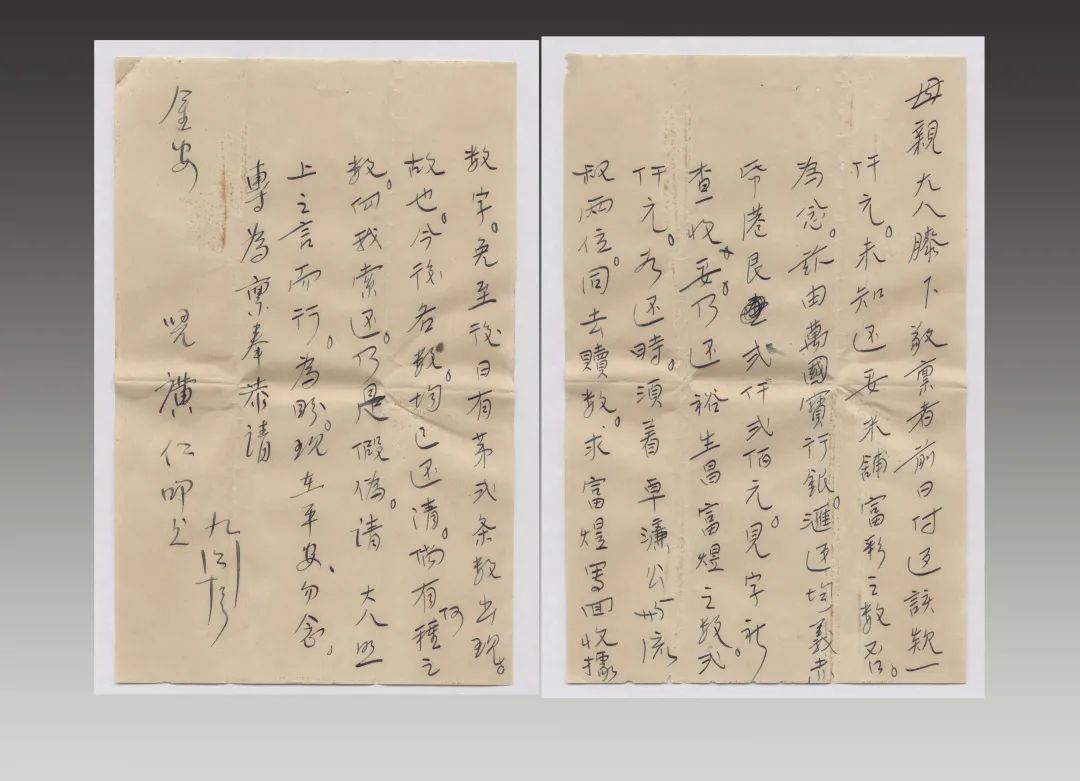 母親大人膝下敬禀者前日付返該款一
仟元。未知还妥米舖富彩之数否。
為念。茲由萬國寶行銀滙返均義赤
帋港艮弍仟弍佰元。見字祈
查收。妥乃还裕生昌富煌之数弍。
仟元。为还時。須着卓濂公與流
叔兩位同去贖数。求富煌写回收據
数字。免至後日有第弍条数出現。
故也。今後各数。均已还清。倘有何種之
数。向我索还。乃是假偽。請 大人照
上之言而行。為盼。現在平安。勿念。
專為禀奉恭請
金安
兒 襀仁叩上
九